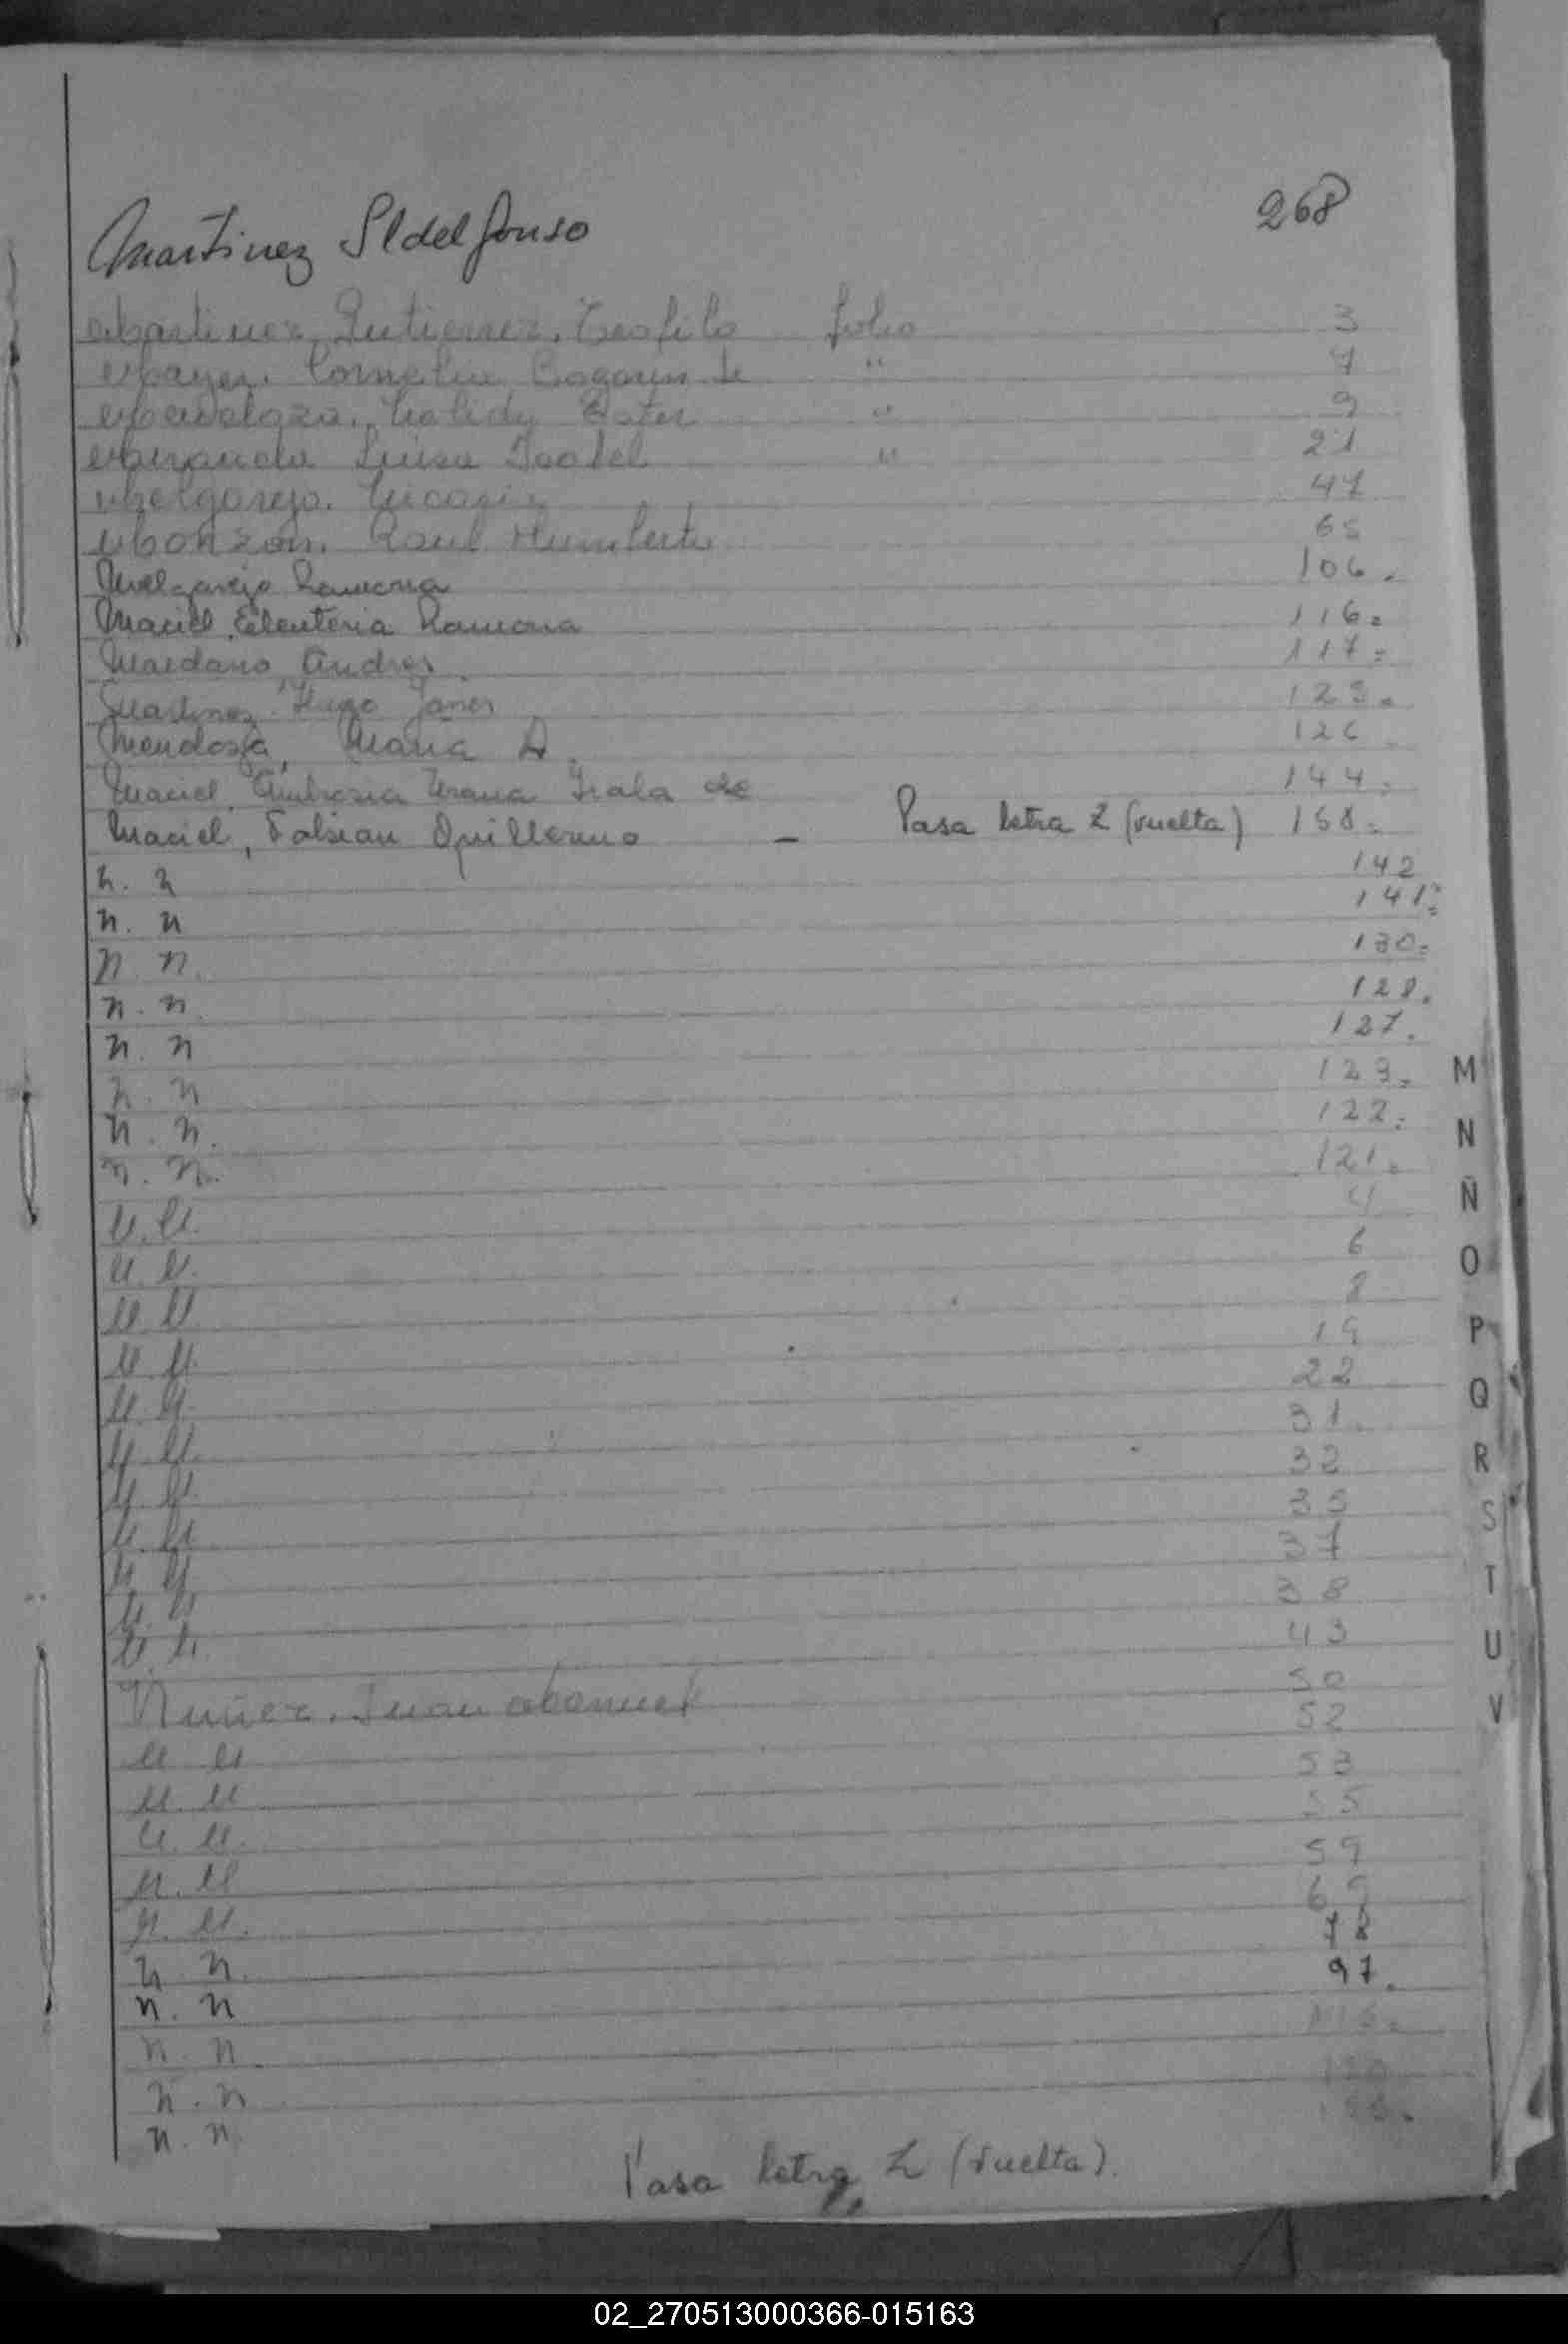 Martinez Ildelfonso 268
Martinez Gutierrez, Teofilo folio 3
Cornelia Bogarin de " 7
" 9
Miranda Luisa Isabel " 21
Melgarejo. 47
Monzon. Raul Humberto 65
Melgarejo Ramona 106.
Maciel, Eleuteria Ramona 116=
Maidana, Andres 117=
Martinez Hugo 125=
Mendoza, Maria D. 126
Maciel, Ambrosia Irala de 144=
Maciel, Fabian Guillermo - Pasa letra Z (vuelta) 158=
n. n 142
n. n 141=
n. n. 130=
n. n. 128.
n. n 127.
n. n 123=
n. n. 122=
n. n. 121=
N. N. 4
N. N. 6
N N 8
N N. 19
N. N. 22
N. N. 31.
N. N. 32
N. N. 35
N. N. 37
N. N. 38
N. N. 43
50
Nuñez. Juan Manuel 52
N N 53
N. N 55
N. N. 59
N. N 65
N. N. 78
n. n. 97.
n. n
n. n.
n. n
n. n.
Pasa letra Z (vuelta).
M
N
Ñ
O
P
Q
R
S
T
U
V
02_270513000366-015163